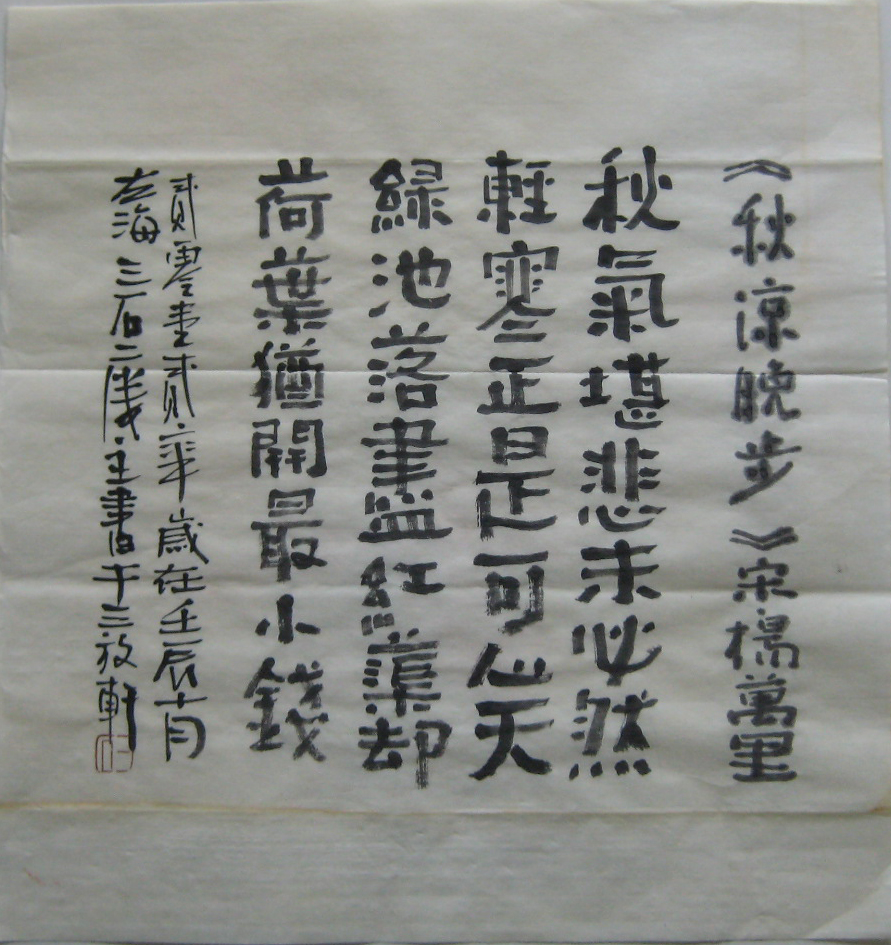 《秋涼晚步》宋楊萬里
秋氣堪悲未必然
輕寒正是可心天
綠池落盡紅蕖却
荷葉猶開最小錢
貳零壹貳年歲在壬辰十月
左海三石二歲主書于三放軒